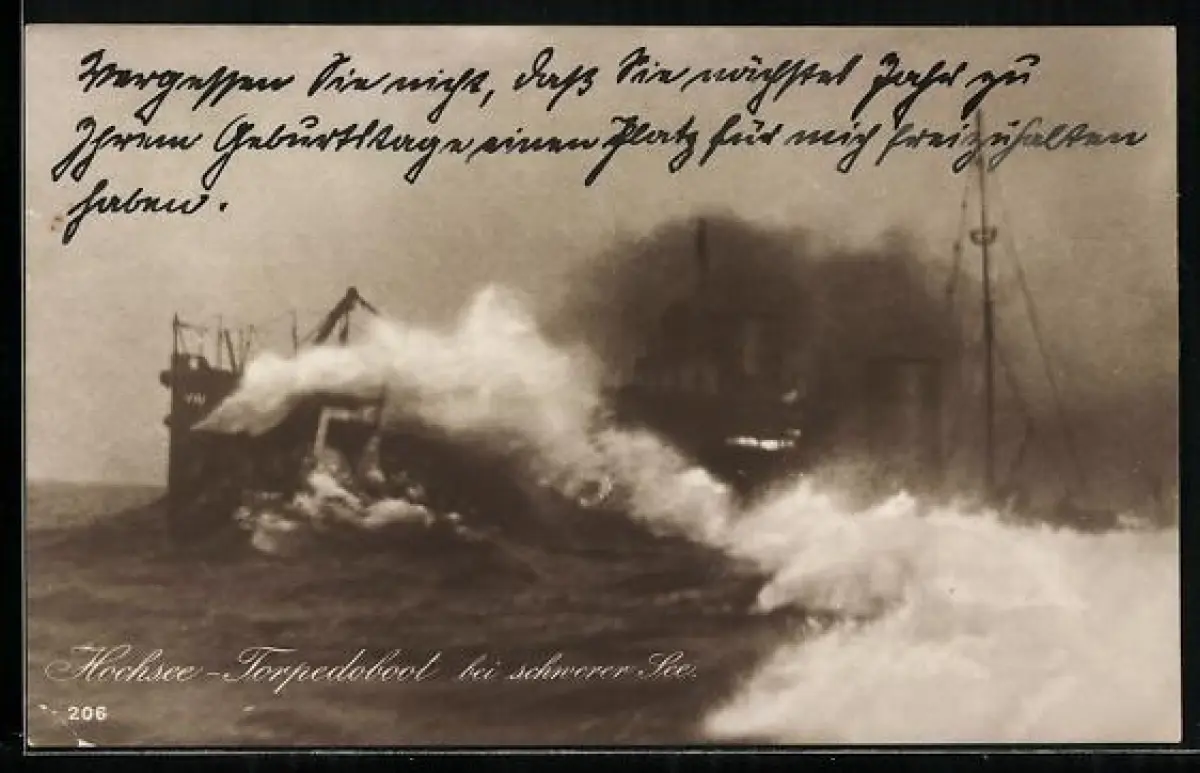 Vergessen Sie nicht, daß Sie nächstes Jahr zu
Ihrem Geburtstage einen Platz für mich freizuhalten
haben.
VIII
Hochsee-Torpedoboot bei schwerer See.
206